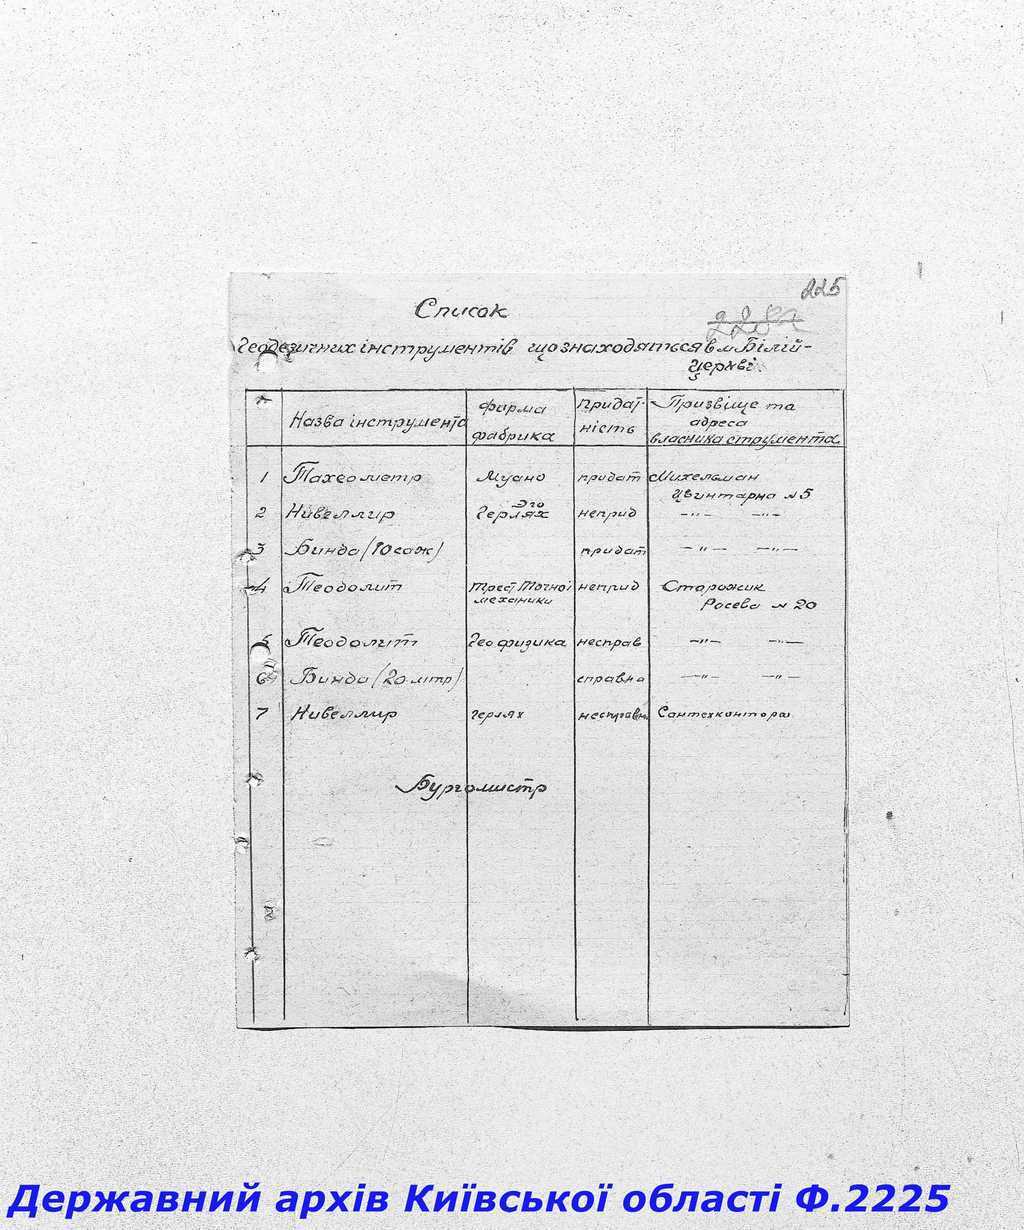 225
Список
геодезичних інструментів що знаходяться в м Білій-
Церкві
Назва інструмента фирма фабрика придат-ність Призвіще та адреса власника струмента
1 Тахеометр Муано придат Михельман
Цвинтарна №5
2 Нивеллир Герлях неприд —"— —"—
3 Бинда (10 саж) придат —"— —"—
4 Теодолит Трест Точної механики неприд Сторожик
Росева №20
5 Теодолит Геофизика несправ —"— —"—
6 Бинда (20 мтр) справна —"— —"—
7 Нивеллир Герлях несправн. Сантехконтора
Бургомистр
Державний архів Київської області Ф.2225